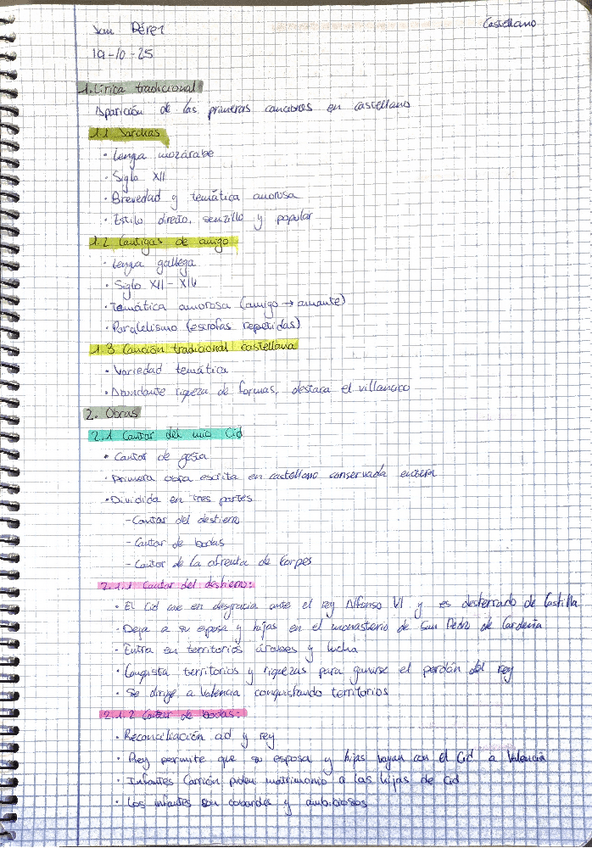 Pérez
Castellano
19-10-25
1. Lírica tradicional
Aparición de las primeras canciones en castellano
1.1 Jarchas
· Lengua mozárabe
· Siglo XII
· Brevedad y temática amorosa
· Estilo directo, senzillo y popular
1.2 Cantigas de amigo
· Lengua gallega
· Siglo XII - XIV
· Temática amorosa (amigo → amante)
· Paralelismo (estrofas repetidas)
1.3 Canción tradicional castellana
· Variedad temática
· Abundante riqueza de formas, destaca el villancico
2. Obras
2.1 Cantar del mio Cid
· Cantar de gesta
· Primera obra escrita en castellano conservada entera
· Dividida en tres partes
- Cantar del destierro
- Cantar de bodas
- Cantar de la afrenta de Korpes
2.1.1 Cantar del destierro:
· El Cid cae en desgracia ante el rey Alfonso VI y es desterrado de Castilla
· Deja a su esposa y hijas en el monasterio de San Pedro de Cardeña
· Entra en territorios árabes y lucha
· Conquista territorios y riquezas para ganarse el perdón del rey
· Se dirige a Valencia conquistando territorios
2.1.2 Cantar de bodas:
· Reconciliación Cid y rey
· Rey permite que su esposa y hijas vayan con el Cid a Valencia
· Infantes Carrión piden matrimonio a las hijas de Cid
· Los infantes son cobardes y ambiciosos